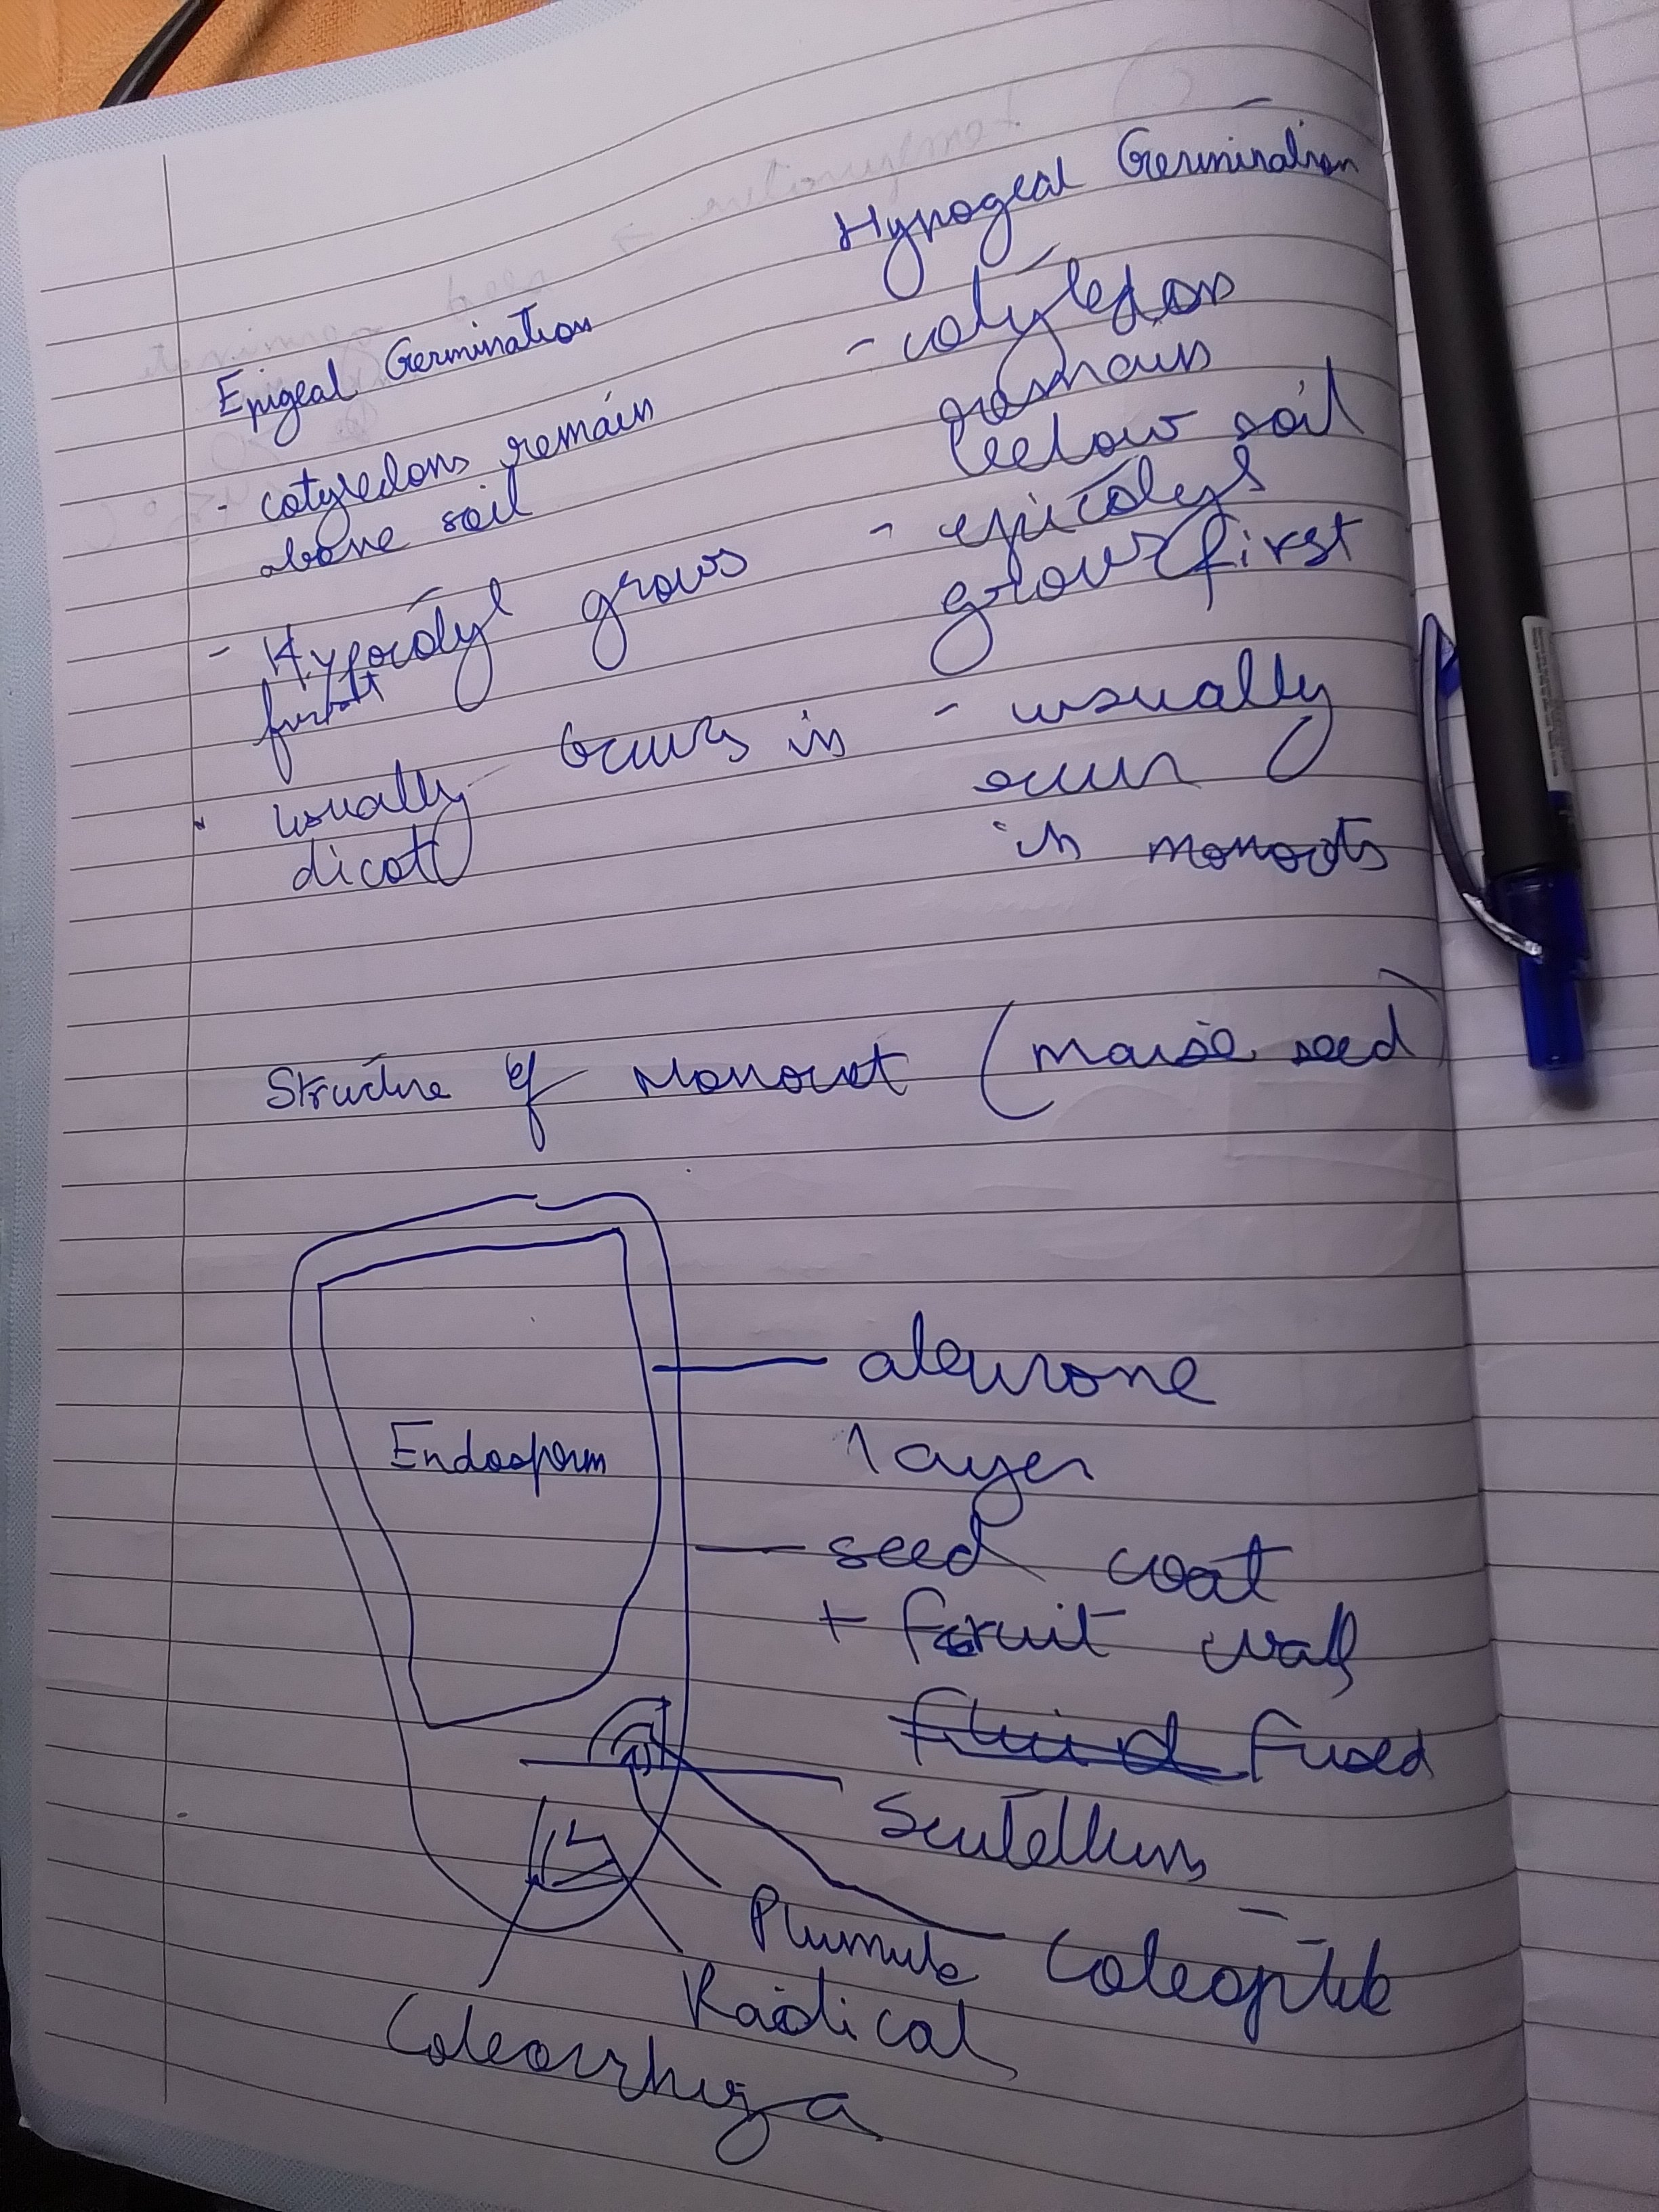 Epigeal Germination
- cotyledons remain
above soil
- Hypocotyl grows
first
- usually occurs in
dicot
Hypogeal Germination
- cotyledons
remains
below soil
- epicotyl
grows first
- usually
occur
in monocots
Structure of Monocot (Maize seed)
Endosperm
aleurone
layer
seed coat
+ fruit wall
fused
Scutellum
Plumule
Coleoptile
Radical
Coleorrhiza